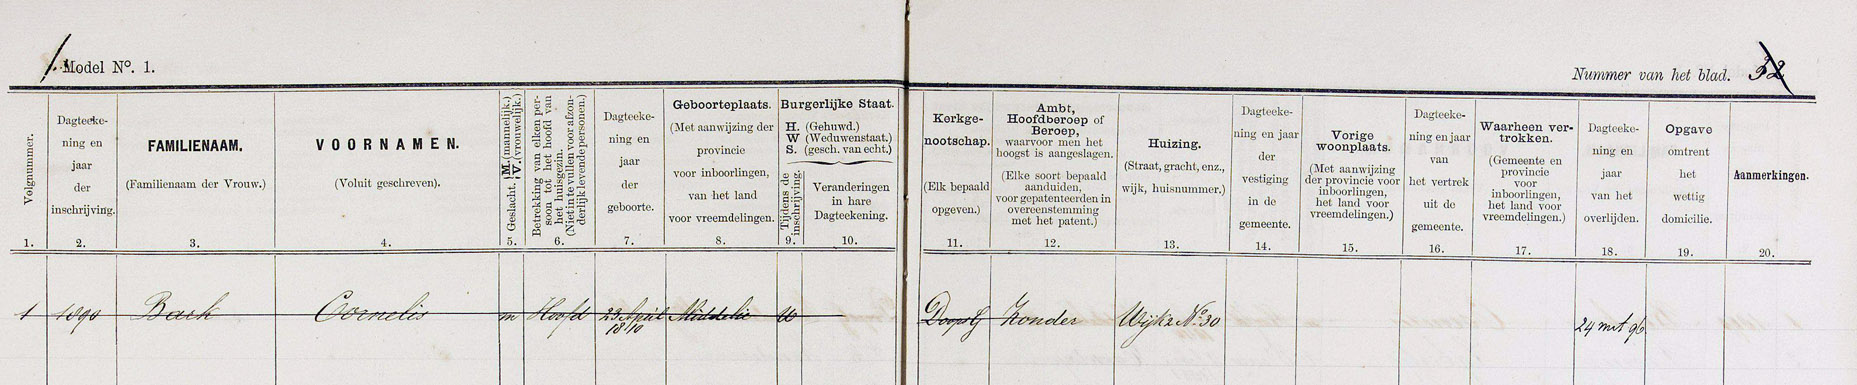 1.
Model No. 1.
Nummer van het blad. 32
Volgnummer.
1.
Dagteeke-
ning en
jaar
der
inschrijving.
2.
FAMILIENAAM.
(Familienaam der Vrouw.)
3.
VOORNAMEN.
(Voluit geschreven).
4.
Geslacht. M. (mannelijk.) V. (vrouwelijk.)
5.
Betrekking van elken per-
soon tot het hoofd van
het huisgezin.
(Niet in te vullen voor afzon-
derlijk levende personen.)
6.
Dagteeke-
ning en
jaar
der
geboorte.
7.
Geboorteplaats.
(Met aanwijzing der
provincie
voor inboorlingen,
van het land
voor vreemdelingen.
8.
Burgerlijke Staat.
H. (Gehuwd.)
W (Weduwenstaat.)
S. (gesch. van echt.)
Tijdens de
inschrijving.
9.
Veranderingen
in hare
Dagteekening.
10.
Kerkge-
nootschap.
(Elk bepaald
opgeven.)
11.
Ambt,
Hoofdberoep of
Beroep,
waarvoor men het
hoogst is aangeslagen.
(Elke soort bepaald
aanduiden,
voor gepatenteerden in
overeenstemming
met het patent.)
12.
Huizing.
(Straat, gracht, enz.,
wijk, huisnummer.)
13.
Dagteeke-
ning en jaar
der
vestiging
in de
gemeente.
14.
Vorige
woonplaats.
(Met aanwijzing
der provincie voor
inboorlingen,
het land voor
vreemdelingen.)
15.
Dagteeke-
ning en jaar
van
het vertrek
uit de
gemeente.
16.
Waarheen ver-
trokken.
(Gemeente en
provincie
voor
inboorlingen,
het land voor
vreemdelingen.)
17.
Dagteeke-
ning en
jaar
van het
overlijden.
18.
Opgave
omtrent
het
wettig
domicilie.
19.
Aanmerkingen.
20.
1 1890 Bark Cornelis m Hoofd 23 April Middelie W Doopsg Zonder Wijk 2 No. 30 24 mrt 96
1810